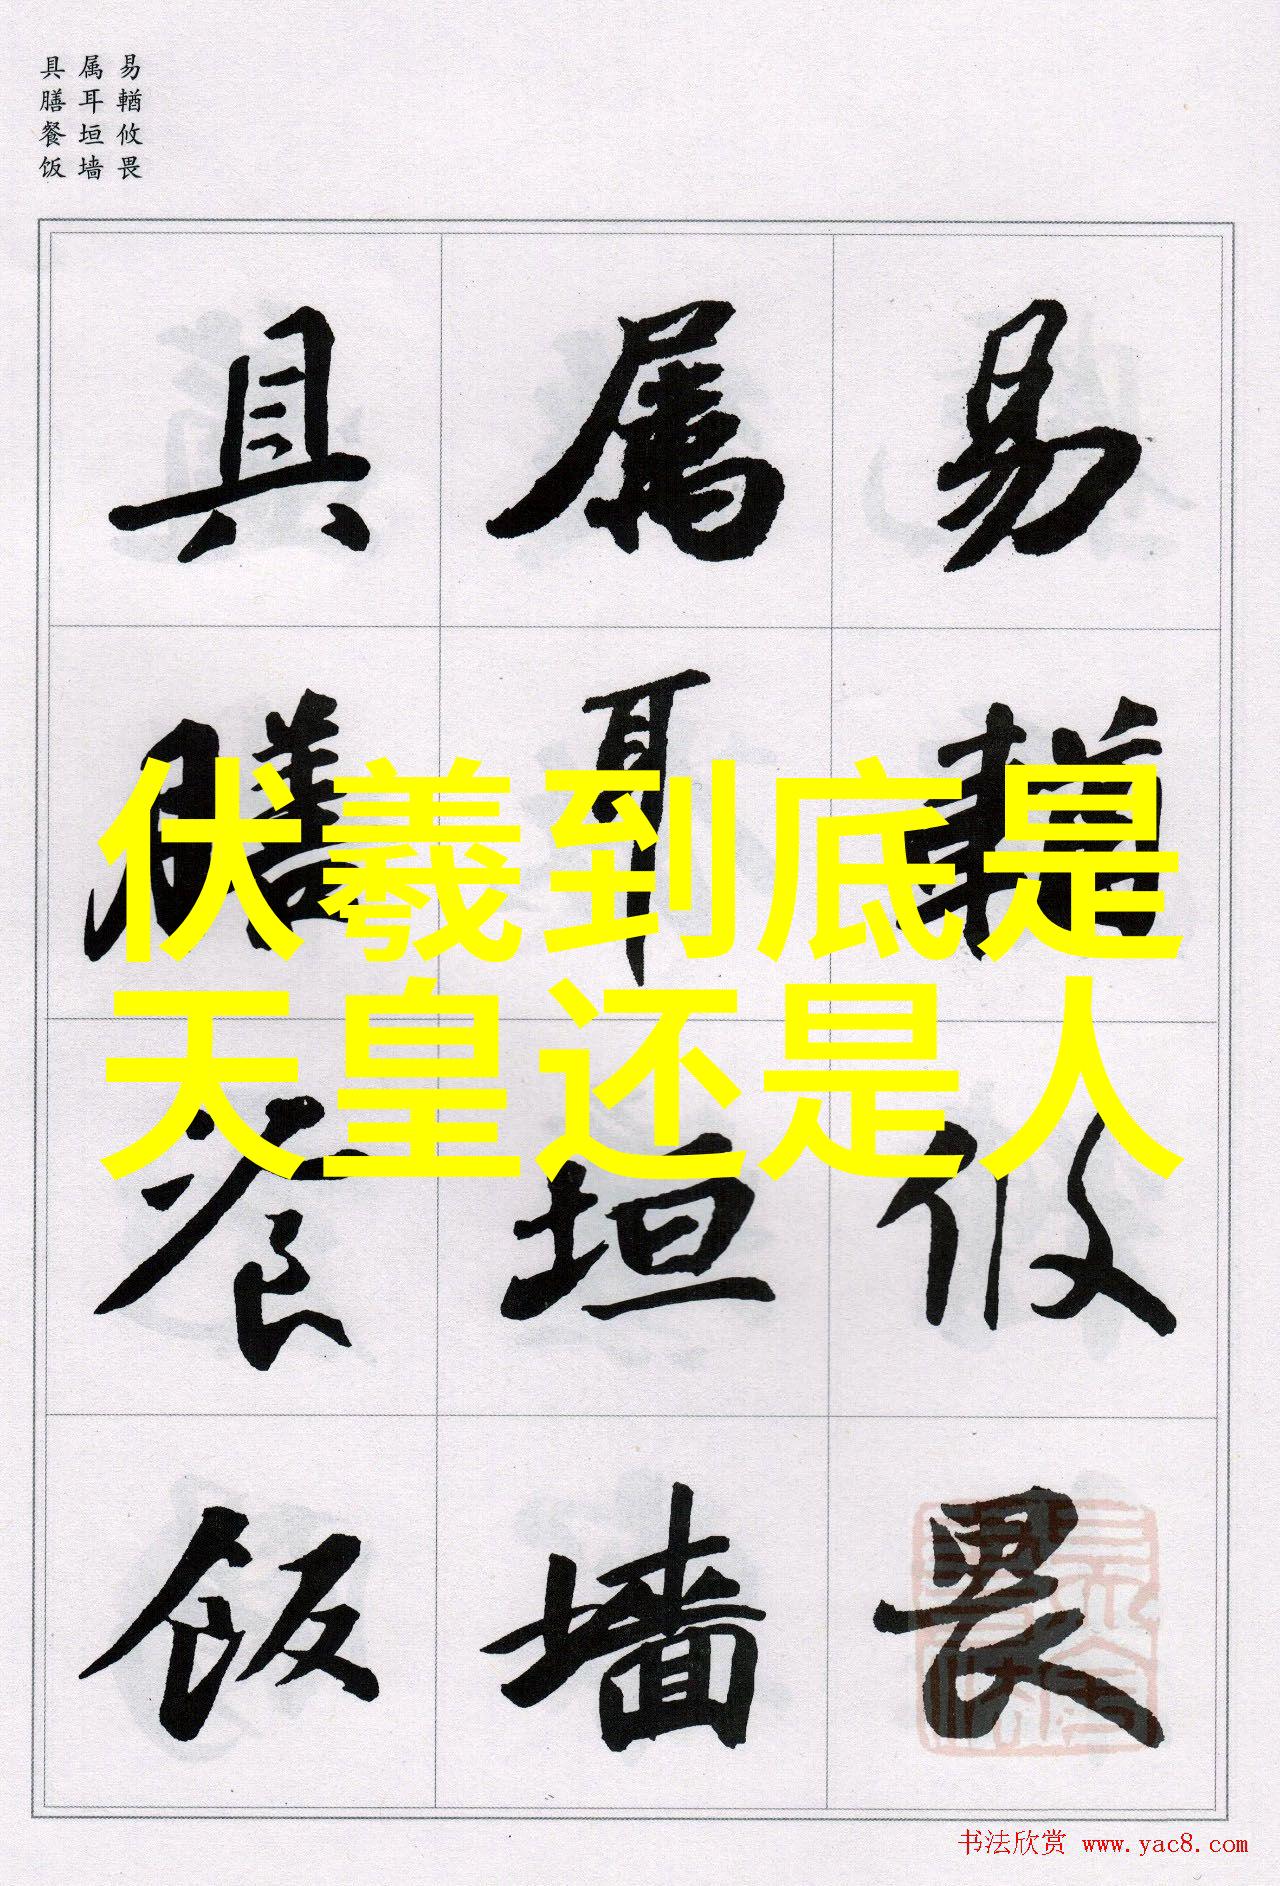 易輶攸畏
属耳垣墙
具膳餐饭
易輶攸畏
属耳垣墙
具膳餐饭
伏羲到底是
天皇还是人
书法欣赏 www.yac8.com